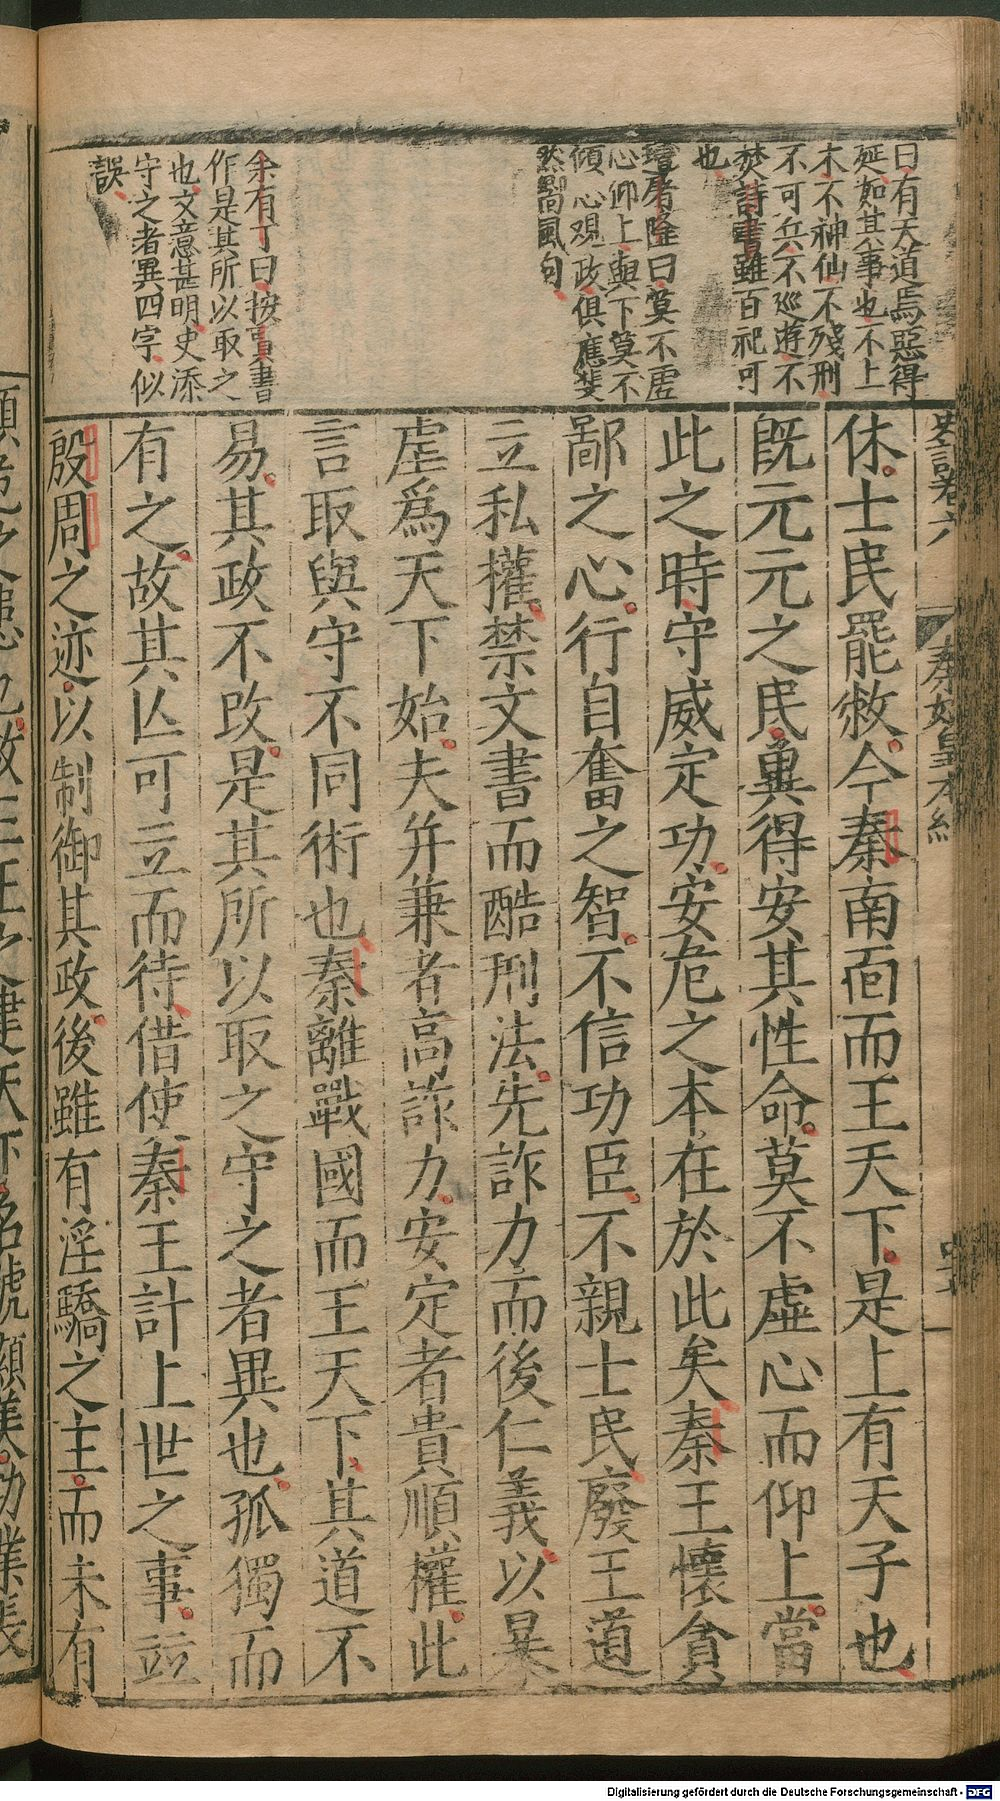 史記卷六
秦始皇本紀
曰有天道焉惡得
延如其事也不上
木不神仙不殘刑
不可兵不巡遊不
焚詩書雖百祀可
也
屠隆曰莫不虛
心仰上與下莫不
傾心觀政俱應斐
然嚮風句
余有丁曰按賈書
作是其所以取之
也文意甚明史添
守之者異四字似
誤
休士民罷敝今秦南面而王天下是上有天子也
既元元之民冀得安其性命莫不虛心而仰上當
此之時守威定功安危之本在於此矣秦王懷貪
鄙之心行自奮之智不信功臣不親士民廢王道
立私權禁文書而酷刑法先詐力而後仁義以暴
虐爲天下始夫并兼者高詐力安定者貴順權此
言取與守不同術也秦離戰國而王天下其道不
易其政不改是其所以取之守之者異也孤獨而
有之故其亾可立而待借使秦王計上世之事竝
殷周之迹以制御其政後雖有淫驕之主而未有
Digitalisierung gefördert durch die Deutsche Forschungsgemeinschaft - DFG